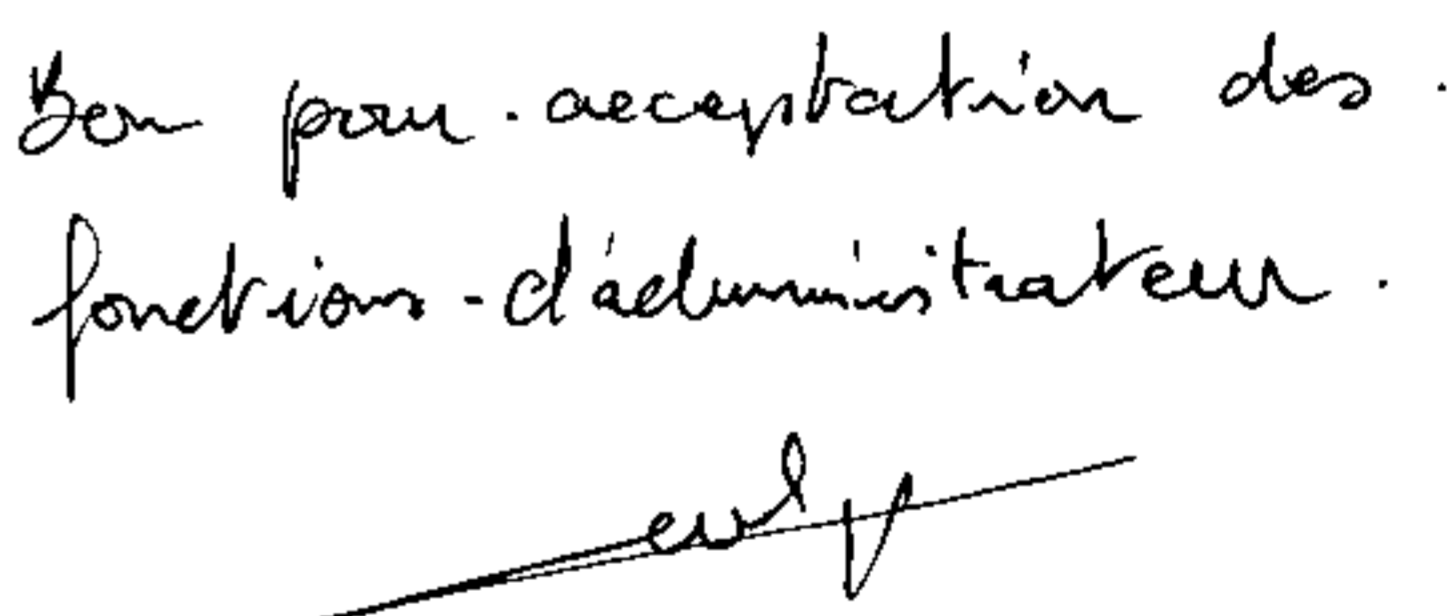 Bon pour acceptation des
fonctions d'administrateur.